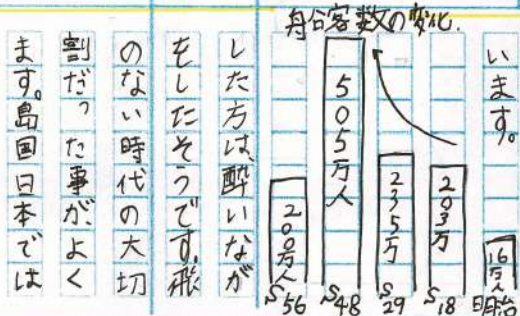 います。
船客数の変化.
16万人
明治
203万
S18
235万
S29
505万人
S48
200万人
S56
した方は、酔いなが
をしたそうです。飛
のない時代の大切
割だった事が、よく
ます。島国日本では